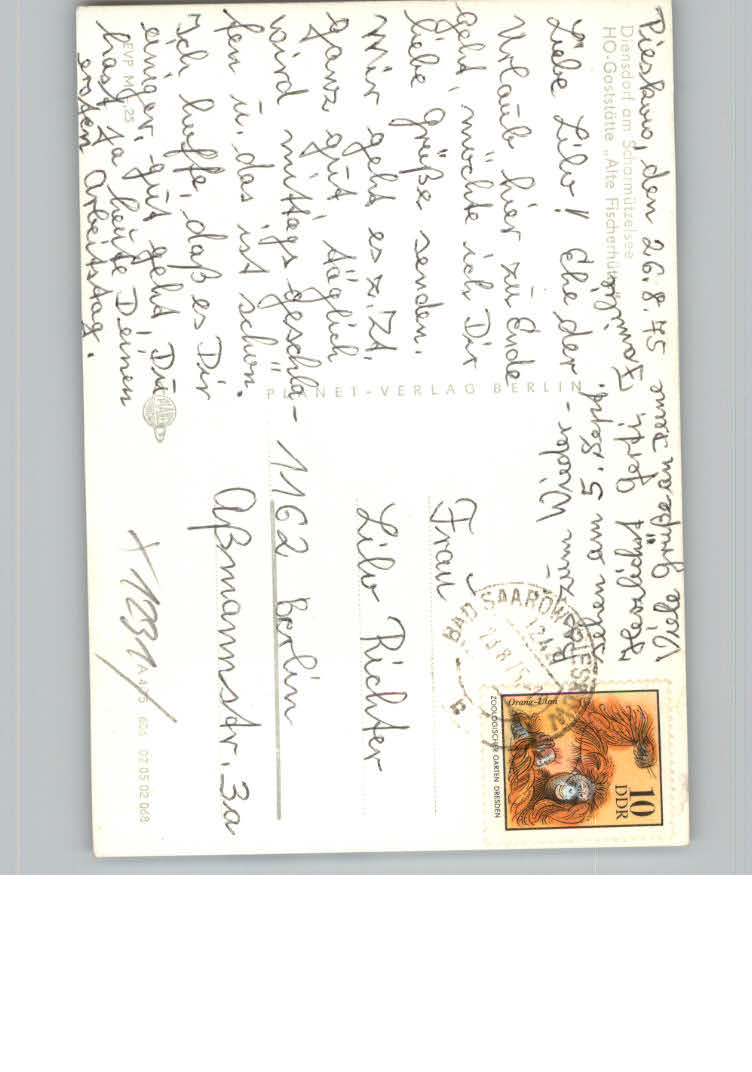 Diensdorf am Scharmützelsee
HO-Gaststätte „Alte Fischerhütte"
Pieskow, den 26.8.75
Liebe Lilo! Ehe der
Urlaub hier zu Ende
geht, möchte ich Dir
liebe Grüße senden.
Mir geht es z. Zt.
ganz gut, täglich
wird mittags geschla-
fen u. das ist schön.
Ich hoffe, daß es Dir
einiger. gut geht, Du
hast ja heute Deinen
ersten Arbeitstag.
Bis zum Wieder-
sehen am 5. Sept.
Herzlichst Gerti
Viele Grüße an Deine
Familie!
EVP M 0,25
PLANET-VERLAG BERLIN
Frau
Lilo Richter
1162 Berlin
Aßmannstr. 3a
BAD SAAROW-PIESKOW
1242
Orang-Utan
ZOOLOGISCHER GARTEN DRESDEN
10
DDR
A 4 76 655 02 05 02 068